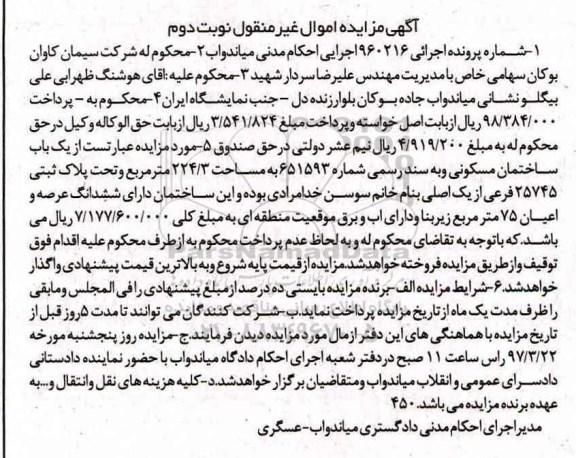 آگهی مزایده اموال غیر منقول نوبت دوم
۱-شماره پرونده اجرائی ۹۶۰۲۱۶اجرایی احکام مدنی میاندواب ۲-محکوم له شرکت سیمان کاوان
بوکان سهامی خاص با مدیریت مهندس علیرضا سردار شهید ۳-محکوم علیه:اقای هوشنگ ظهرابی علی
بیگلو نشانی میاندواب جاده بوکان بلوار زنده دل - جنب نمایشگاه ایران ۴-محکوم به - پرداخت
۹۸/۳۸۴/۰۰۰ ریال از بابت اصل خواسته و پرداخت مبلغ ۳/۵۴۱/۸۲۴ ریال از بابت حق الوکاله وکیل در حق
محکوم له به مبلغ ۴/۹۱۹/۲۰۰ ریال نیم عشر دولتی در حق صندوق ۵-مورد مزایده عبارتست از یک باب
ساختمان مسکونی وبه سند رسمی شماره ۶۵۱۵۹۳ به مساحت ۲۲۴/۳ متر مربع و تحت پلاک ثبتی
۲۵۷۴۵ فرعی از یک اصلی بنام خانم سوسن خدامرادی بوده و این ساختمان دارای ششدانگ عرصه و
اعیان ۷۵ متر مربع زیربنا ودارای اب و برق موقعیت منطقه ای به مبلغ کلی ۷/۱۷۷/۶۰۰/۰۰۰ ریال می
باشد.که با توجه به تقاضای محکوم له و به لحاظ عدم پرداخت محکوم به از طرف محکوم علیه اقدام فوق
توقیف و از طریق مزایده فروخته خواهد شد.مزایده از قیمت پایه شروع و به بالاترین قیمت پیشنهادی واگذار
خواهد شد.۶-شرایط مزایده الف-برنده مزایده بایستی ده درصد از مبلغ پیشنهادی را فی المجلس ومابقی
را ظرف مدت یک ماه از تاریخ مزایده پرداخت نماید.ب-شرکت کنندگان می توانند تا مدت ۵روز قبل از
تاریخ مزایده با هماهنگی های این دفتر از مال مورد مزایده دیدن فرمایند.ج-مزایده روز پنجشنبه مورخه
۹۷/۳/۲۲ راس ساعت ۱۱ صبح در دفتر شعبه اجرای احکام دادگاه میاندواب با حضور نماینده دادستانی
دادسرای عمومی و انقلاب میاندواب ومتقاضیان برگزار خواهد شد.د-کلیه هزینه های نقل وانتقال و...به
عهده برنده مزایده می باشد.۴۵۰
مدیر اجرای احکام مدنی دادگستری میاندواب-عسگری